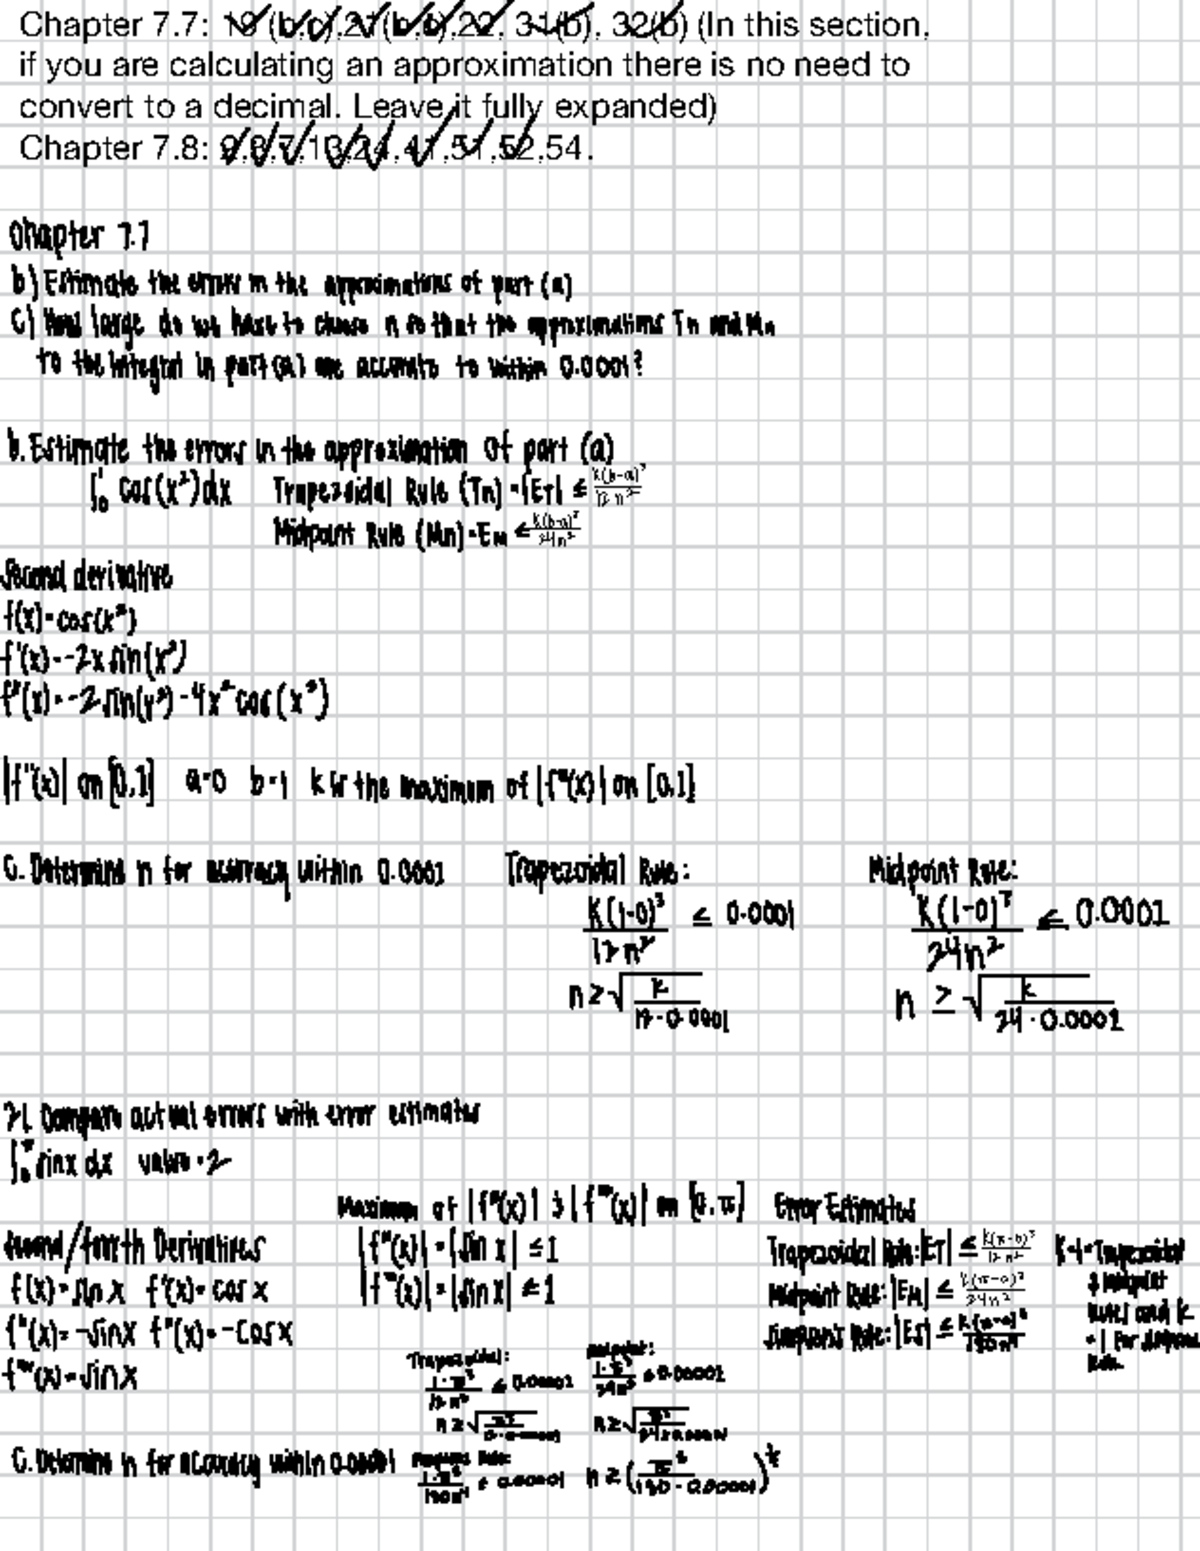 Chapter 7.7: 19 (b,c),21(b,c),22, 31(b), 32(b) (In this section,
if you are calculating an approximation there is no need to
convert to a decimal. Leave it fully expanded)
Chapter 7.8: 13,24,41,51,52,54.
Chapter 7.7
b) Estimate the errors in the approximations of part (a)
c) How large do we have to choose n so that the approximations Tn and Mn
to the integral in part (a) are accurate to within 0.0001?
b. Estimate the errors in the approximation of part (a)
∫₀¹ cos(x²)dx Trapezoidal Rule (Tn) = |ET| ≤ K(b-a)³/12n²
Midpoint Rule (Mn) = EM ≤ K(b-a)³/24n²
Second derivative
f(x) = cos(x²)
f'(x) = -2x sin(x²)
f"(x) = -2 sin(x²) - 4x² cos(x²)
|f"(x)| on [0,1] a=0 b=1 k is the maximum of |f"(x)| on [0,1]
C. Determine n for accuracy within 0.0001 Trapezoidal Rule: Midpoint Rule:
K(1-0)³/12n² ≤ 0.0001 K(1-0)³/24n² ≤ 0.0001
n ≥ √(k/12·0.0001) n ≥ √(k/24·0.0001)
21. Compare actual errors with error estimates
∫₀^π sinx dx value = 2
Maximum of |f"(x)| & |f""(x)| on [0,π] Error Estimated
Second/fourth Derivatives |f"(x)| = |sin x| ≤ 1 Trapezoidal Rule: |ET| ≤ K(π-0)³/12n² K=1=Trapezoidal
f(x) = sin x f'(x) = cos x |f""(x)| = |sin x| ≤ 1 Midpoint Rule: |EM| ≤ K(π-0)³/24n² & midpoint
f"(x) = -sinx f"(x) = -cosx Simpson's Rule: |Es| ≤ K(π-0)⁵/180n⁴ rules and k
f""(x) = sinx = 1 for Simpsons
Rule.
Trapezoidal: Midpoint:
1·π³/12n² ≤ 0.00001 1·π³/24n² ≤ 0.00001
n ≥ √(π³/12·0.00001) n ≥ √(π³/24×0.00001)
C. Determine n for accuracy within 0.00001 Simpsons Rule:
1·π⁵/180n⁴ ≤ 0.00001 n ≥ (π⁵/180·0.00001)^¼